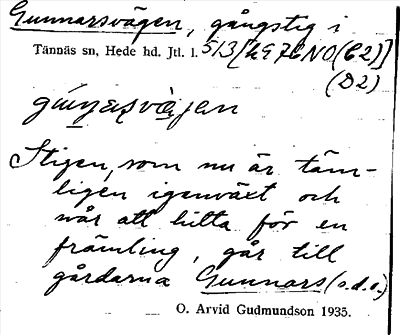 Gunnarsvägen, gångstig i
Tännäs sn, Hede hd. Jtl. l. 513 [497CNO (C2)]
(D2)
Stigen, som nu är täm-
ligen igenväxt och
svår att hitta för en
främling, går till
gårdarna Gunnars (s.d.o.)
O. Arvid Gudmundson 1935.